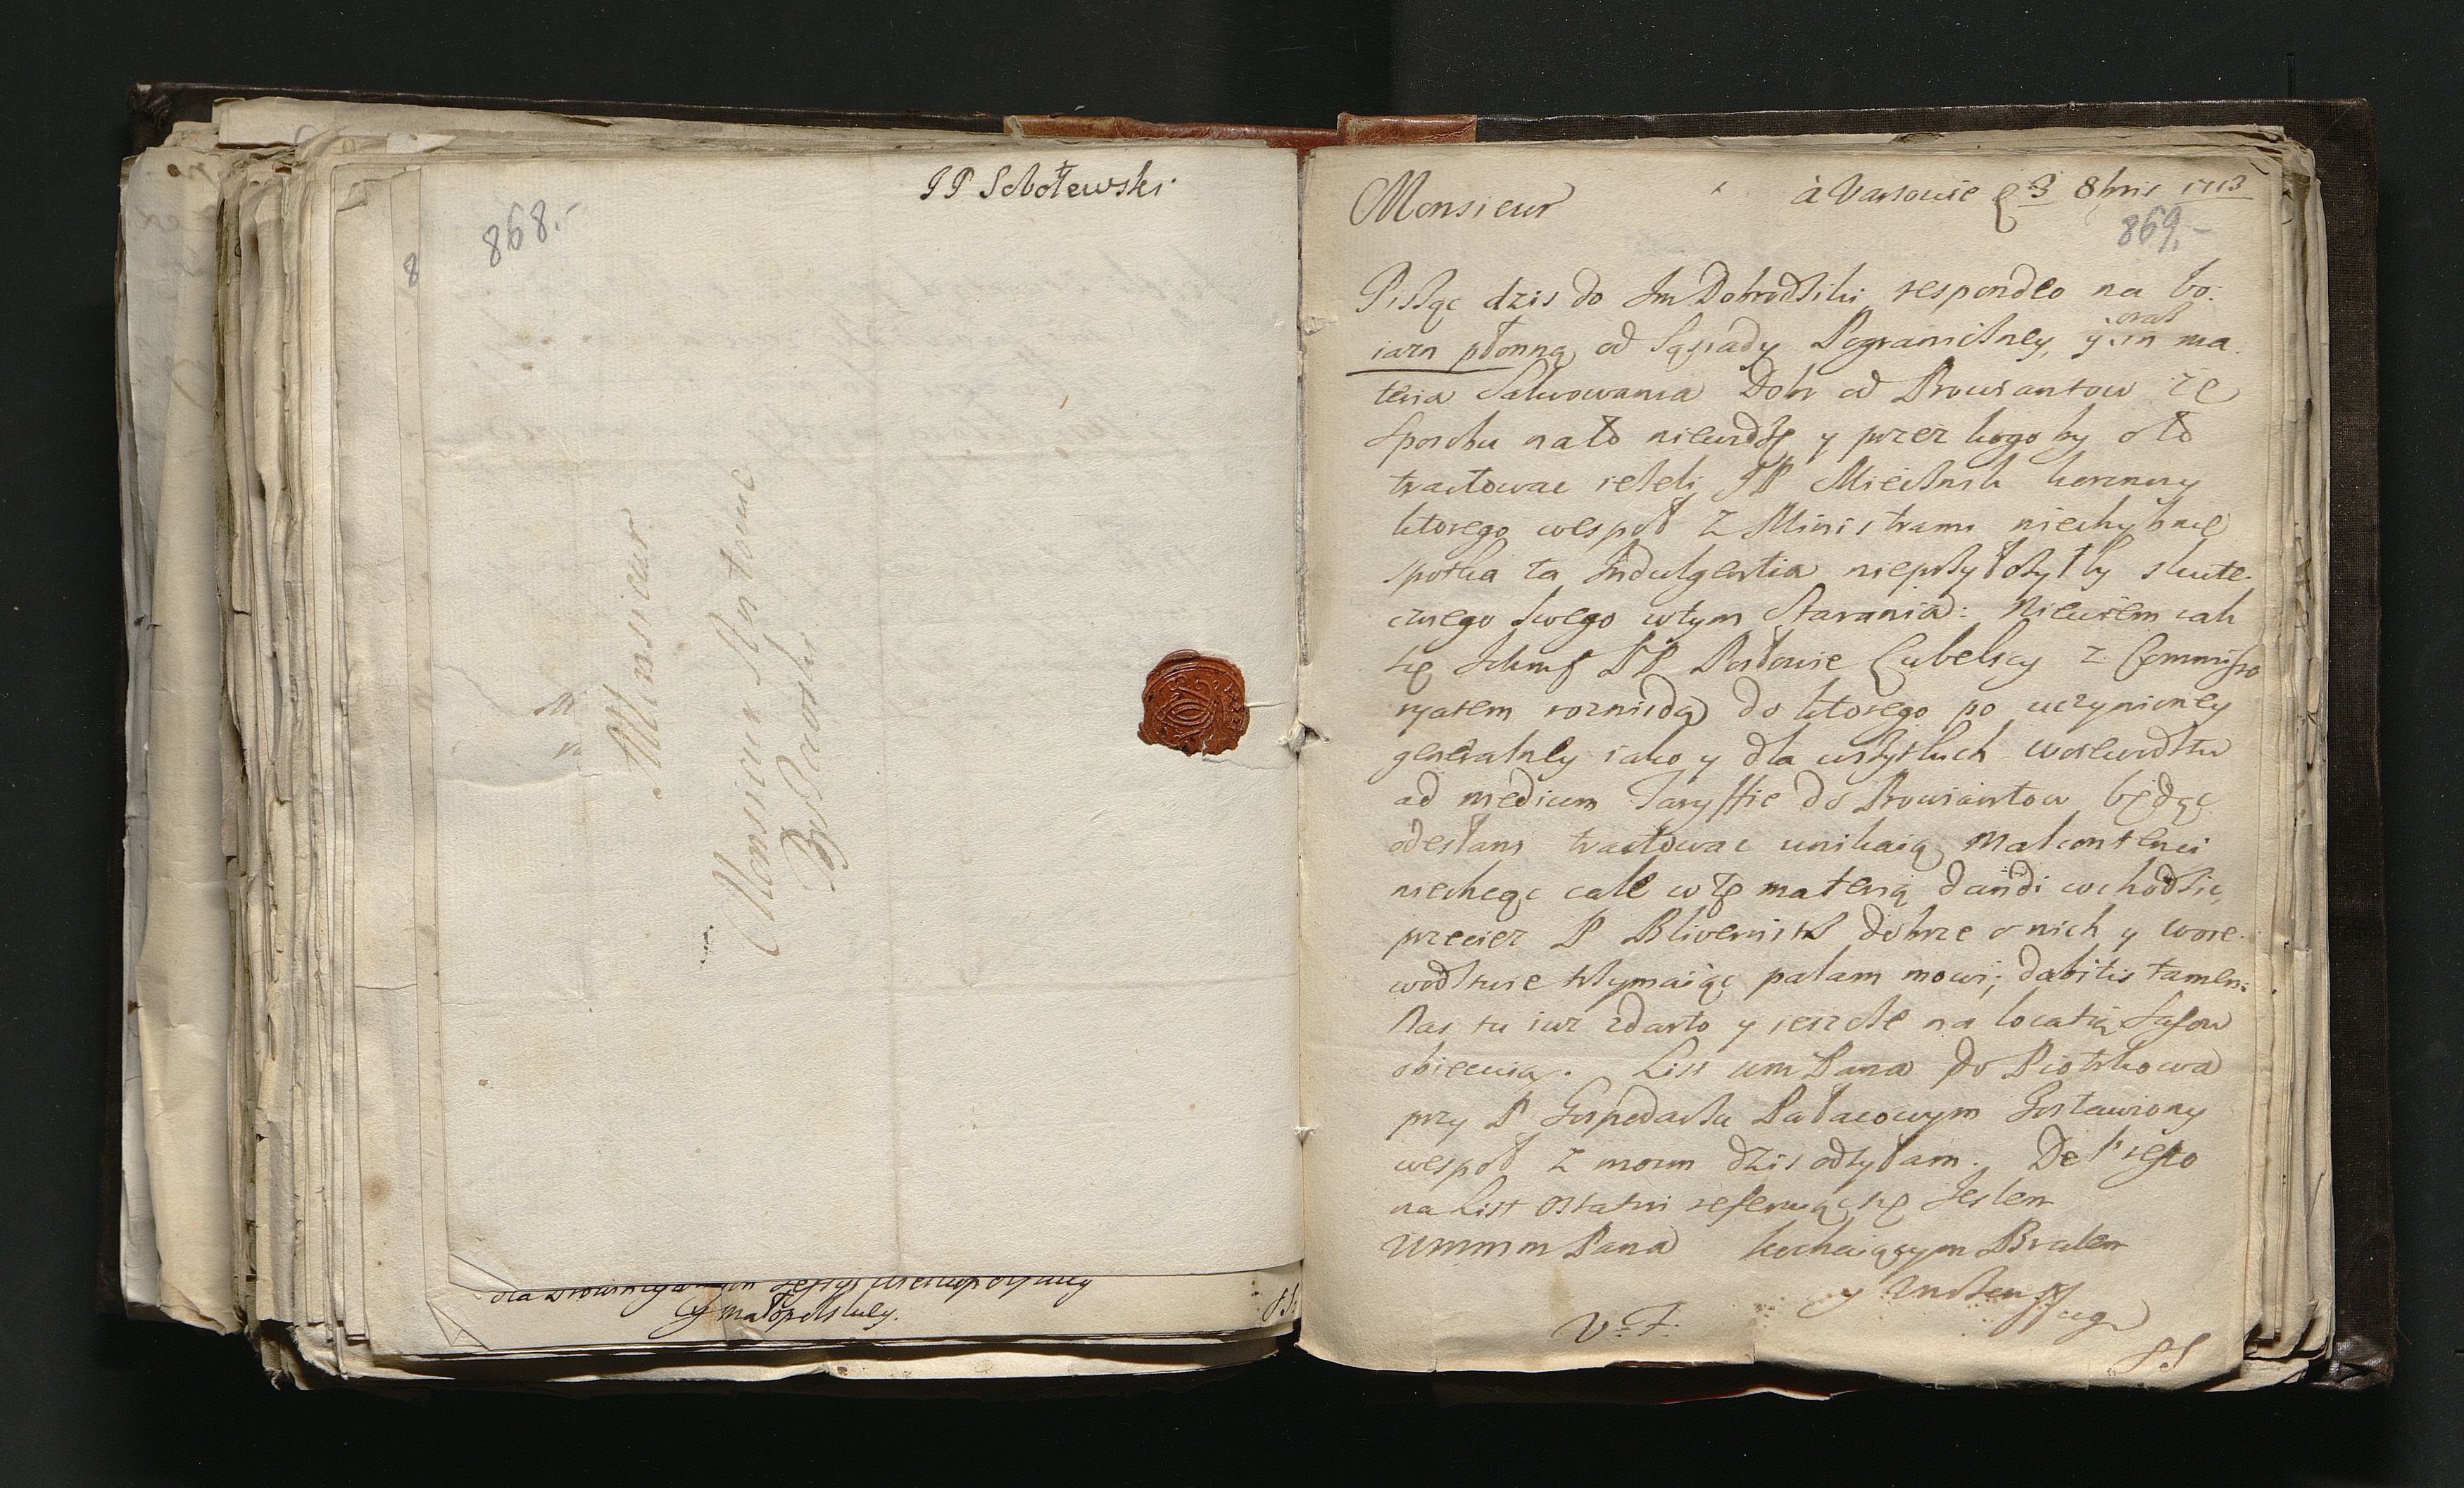 JP Sobolewski
868.-
8
Monsieur
Monsieur
Bystrowski
y małopolskiey.
Monsieur
à Varsovie 3 8bris 1713
869.-
Pisząc dzis do Im Dobrodziki respondeo na bo:
iazn płonną od Sąsiady Pograniczney, y oraz in ma
teria Salwowania Dobr od Prowiantow ze
sposobu na to niewidzę y przez kogo by o to
tractowac ieżeli JP Miecznik koronny
ktorego wespoł z Ministrami niechybnie
spotka ta Indulgentia nieprzyłożył by skute
cznego swego w tym Starania: Niewiem iak
się Ichm PP Posłowie Lubelscy z Commissa
ryatem rozmidą do ktorego po uczynioney
generalney iako y dla wszystkich woiewodztw
ad medium Taryffie do Prowiantow będąc
odesłani tractowac unikaią Malcontenci
niechcąc cale w tę materią dandi wchodzic,
przeciez P Blivernitz dobrze o nich y woie
wodztwie trzymaiąc palam mowi; dabitis tamen.
Nas tu iuz zdarto y ieszcze na locatią Sasow
obiecuią. List wm Pana do Piotrkowa
przy P Gospodarzu Pałacowym zostawiony
wespoł z moim dzis odsyłam. De reliquo
na List ostatni referuiąc się Jestem
WMMM Pana kochaiącym Bratem
y Sługą
V.T.
SS